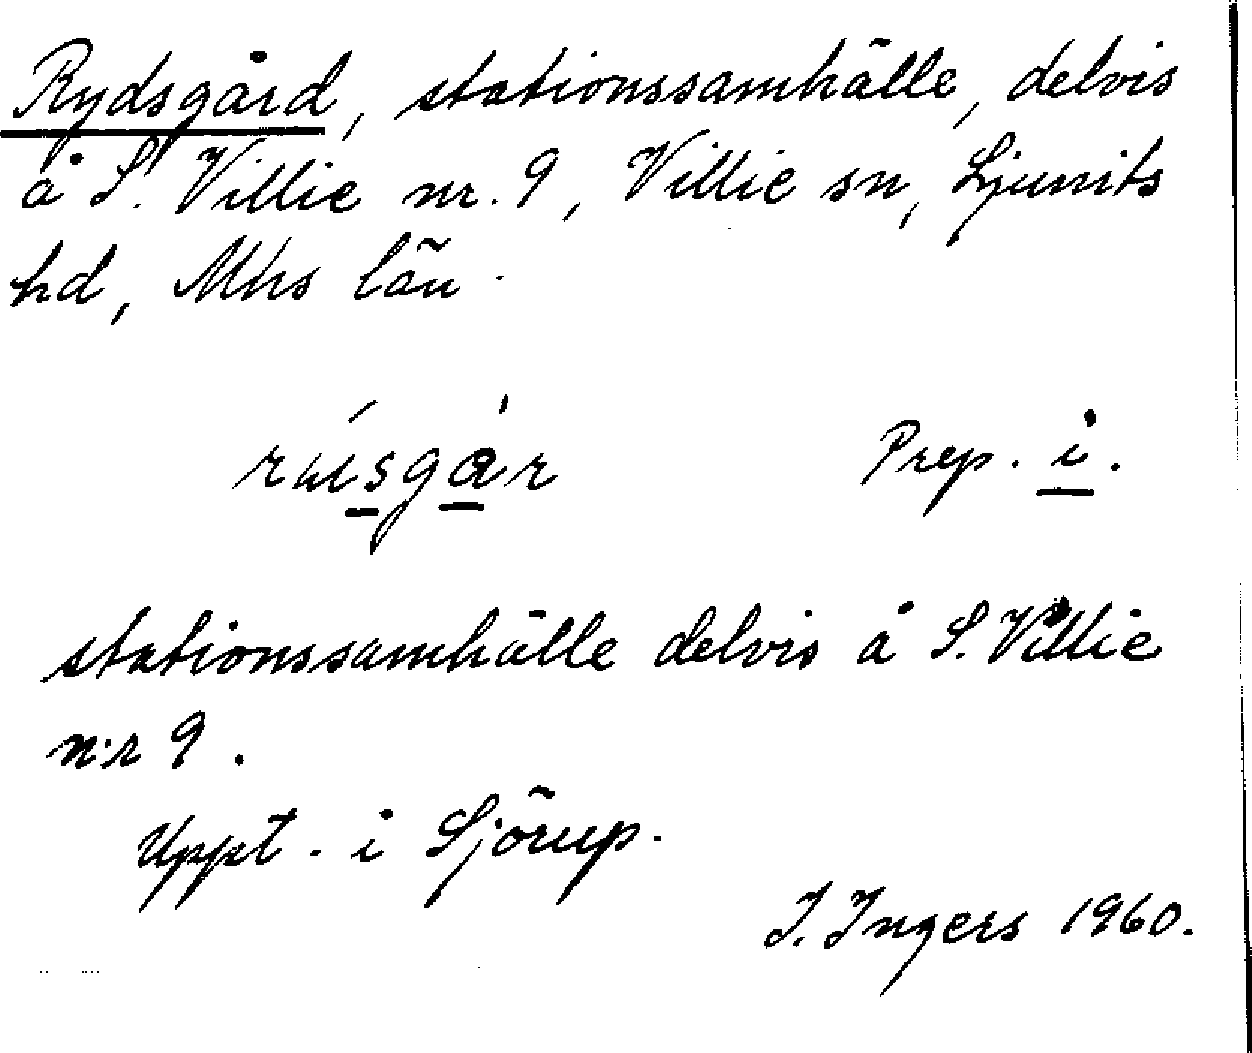 Rydsgård, stationssamhälle, delvis
å S. Villie nr. 9, Villie sn, Ljunits
hd, Mhs län.
Prep. i.
stationssamhälle delvis å S. Villie
n:r 9.
Uppt. i Sjörup.
I. Ingers 1960.